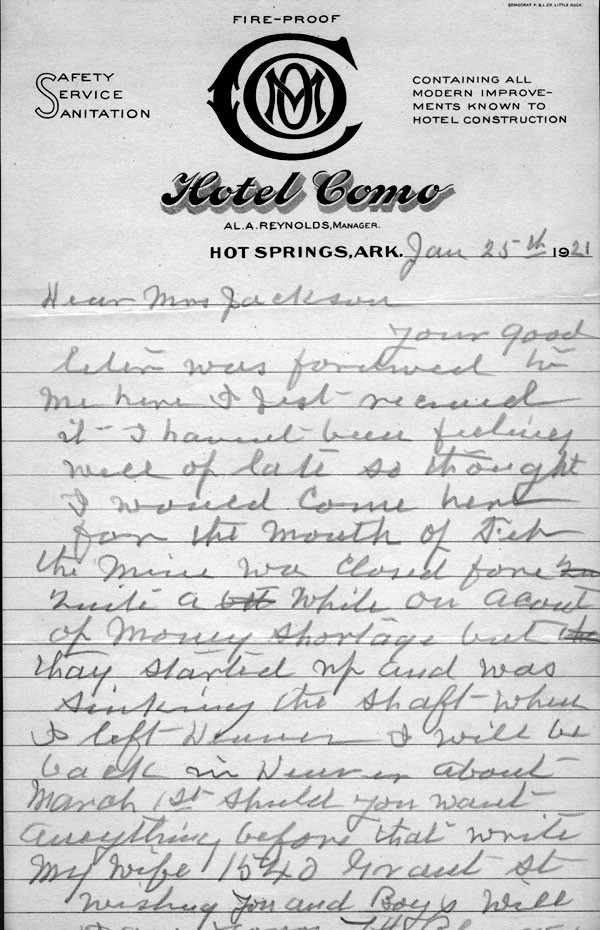 DEMOCRAT P. & L. CO. LITTLE ROCK
FIRE-PROOF
COMO
SAFETY
SERVICE
SANITATION
CONTAINING ALL
MODERN IMPROVE-
MENTS KNOWN TO
HOTEL CONSTRUCTION
Hotel Como
AL. A. REYNOLDS, MANAGER.
HOT SPRINGS, ARK. Jan 25th 1921
Dear Mrs Jackson
Your good
leter was forewed to
me here I Jest recieved
it I havent been feeling
well of late so thought
I would Come here
for the Month of Feb
the Mine was Closed fore
Quite a while on acout
of Money shortage but
thay started up and was
sinking the shaft when
I left Denver I will be
back in Denver about
March 1st should you want
Anything before that write
My wife 1540 Grant st
Wishing you and Boys Well